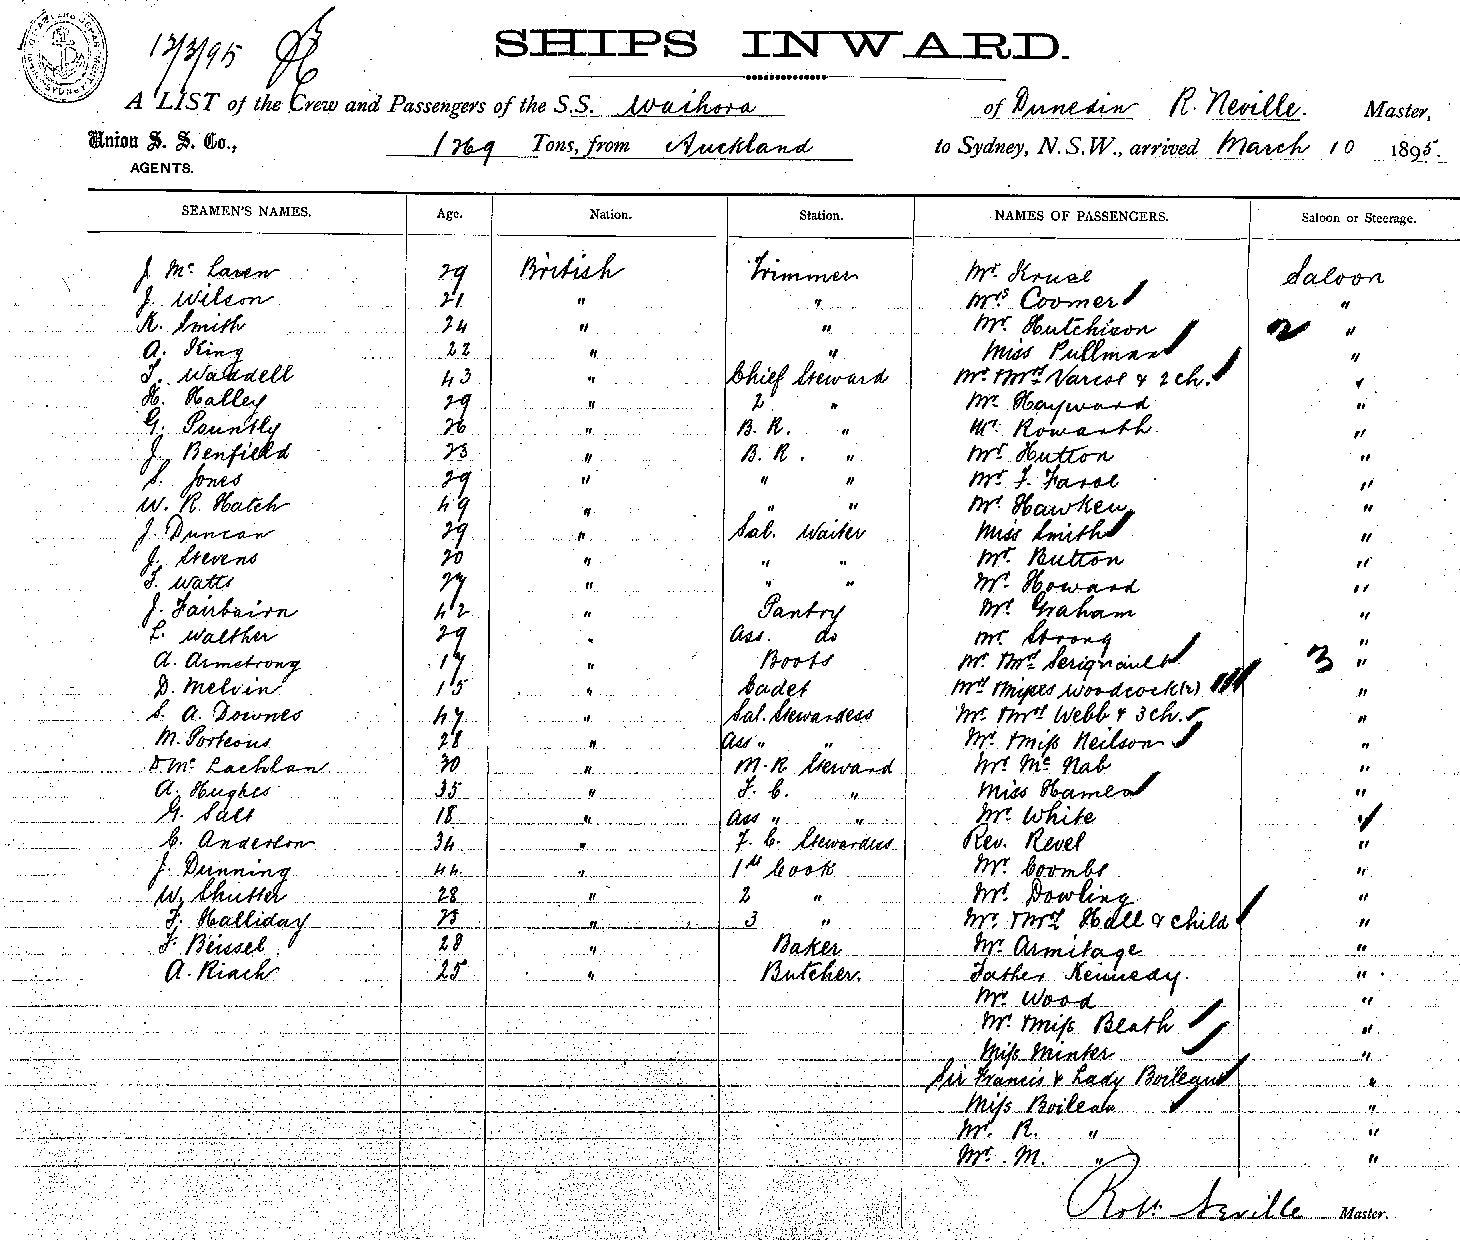 12/3/95
SHIPS INWARD.
A LIST of the Crew and Passengers of the S.S. Waihora of Dunedin R. Neville. Master,
Union S. S. Co., 1269 Tons, from Auckland to Sydney, N.S.W., arrived March 10 1895.
AGENTS.
SEAMEN'S NAMES. Age. Nation. Station. NAMES OF PASSENGERS. Saloon or Steerage.
J. Mc Laren 29 British Trimmer Mr. Kruse Saloon
J. Wilson 21 " " Mrs Coomer "
R. Smith 24 " " Mr. Hutchison 2 "
A. King 22 " " Miss Pullman "
T. Waddell 43 " Chief Steward Mr. & Mrs Varcoe & 2 ch. "
H. Halley 29 " 2 " Mr. Hayward "
G. Pountly 26 " B. R. " Mr. Rowarth "
J. Benfield 23 " B. R. " Mr. Hutton "
S. Jones 29 " " " Mr. F. Farol "
W. R. Hatch 49 " " " Mr. Hawken "
J. Duncan 29 " Sal. Waiter Miss Smith "
J. Stevens 20 " " " Mr. Button "
T. Watts 27 " " " Mr. Howard "
J. Fairbairn 42 " Pantry Mr. Graham "
L. Walther 29 " Ass. do Mr. Strong "
A. Armstrong 17 " Boots Mr. & Mrs Serignault 3 "
D. Melvin 15 " Cadet Mrs & Misses Woodcock (2) "
S. A. Downes 47 " Sal. Stewardess Mr. & Mrs Webb & 3 ch. "
M. Porteous 28 " Ass " " Mr. & Miss Neilson "
D Mc Lachlan 30 " M. R. Steward Mr. Mc Nab "
A. Hughes 35 " F. C. " Miss Hamer "
G. Salt 18 " Ass " " Mr. White "
C. Anderson 34 " F. C. Stewardess Rev. Revel "
J. Dunning 44 " 1st Cook Mr. Coombs "
W. Shutter 28 " 2 " Mr. Dowling "
F. Halliday 23 " 3 " Mr. & Mrs Hall & child "
F. Beissel 28 " Baker Mr. Armitage "
A. Riach 25 " Butcher. Father Kennedy. "
Mr. Wood "
Mr. & Miss Beath "
Miss Minks "
Sir Francis & Lady Boileau "
Miss Boileau "
Mr. R. " "
Mr. M. " "
Robt. Neville Master.